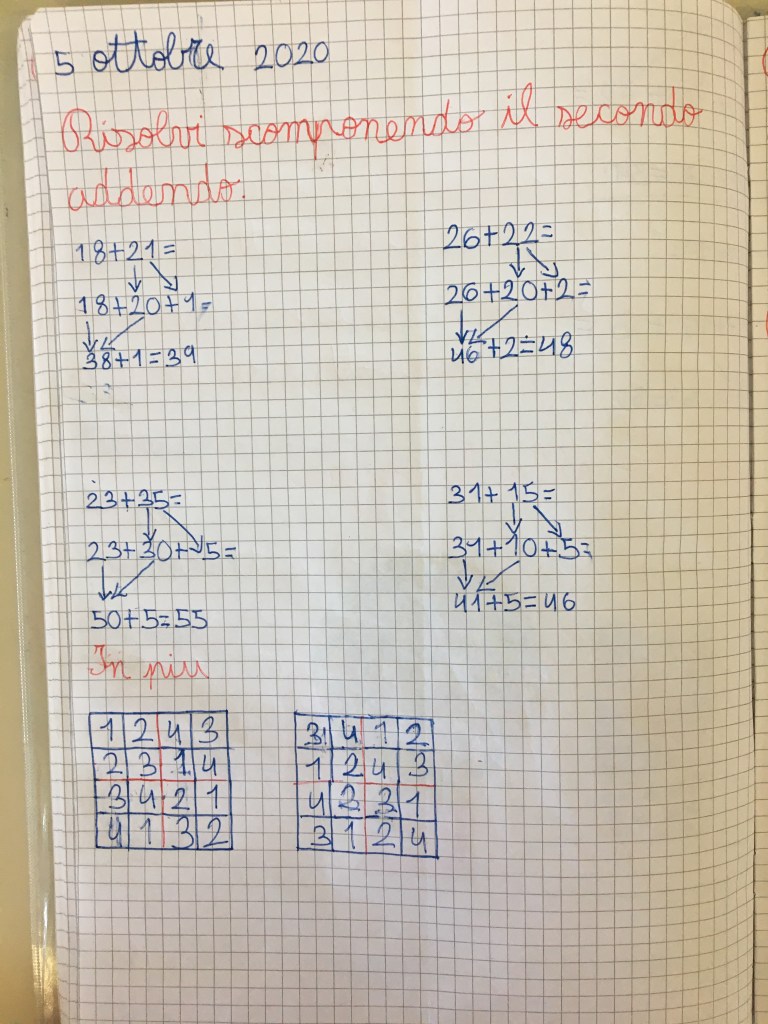 5 ottobre 2020
Risolvi scomponendo il secondo
addendo.
18+21=
18+20+1=
38+1=39
26+22=
26+20+2=
46+2=48
23+35=
23+30+5=
50+5=55
31+15=
31+10+5=
41+5=46
In piu
1 2 4 3
2 3 1 4
3 4 2 1
4 1 3 2
3 4 1 2
1 2 4 3
4 1
3 1 2 4